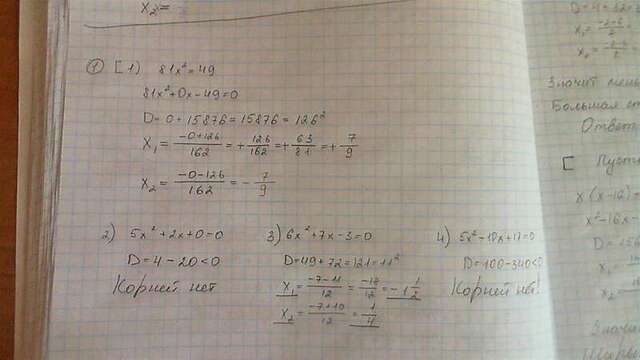 X₂ =
① [ 1) 81x² = 49
81x² + 0x - 49 = 0
D = 0 + 15876 = 15876 = 126²
X₁ = (-0+126)/162 = + 126/162 = + 63/81 = + 7/9
X₂ = (-0-126)/162 = - 7/9
2) 5x² + 2x + 0 = 0
D = 4 - 20 < 0
Корней нет
3) 6x² + 7x - 3 = 0
D = 49 + 72 = 121 = 11²
X₁ = (-7-11)/12 = -18/12 = -1 1/2
X₂ = (-7+10)/12 = 1/4
4) 5x² - 10x + 17 = 0
D = 100 - 340 < 0
Корней нет!
D = 4 + 32 =
X₁ =
X₂ =
Значит
Большая
Ответ
[ Пусть
x(x-16)
x² - 16x
D = 156
X₁ =
X₂ =
Значит